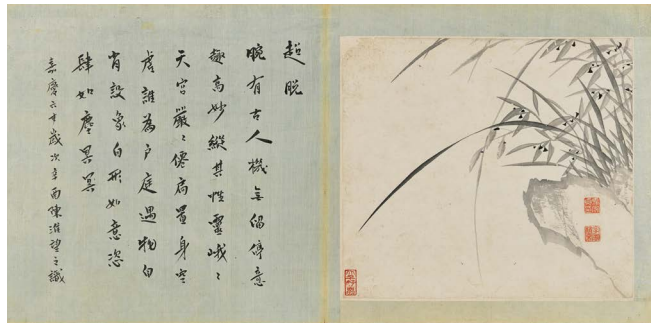 超脫
腕有古人機無留停意
趣高妙縱其性靈峨〻
天宮嚴〻僊扃置身空
虛誰為戶庭遇物自
肖設象自形如意恣
肆如塵冥冥
嘉慶六年歲次辛酉陳淮望之識